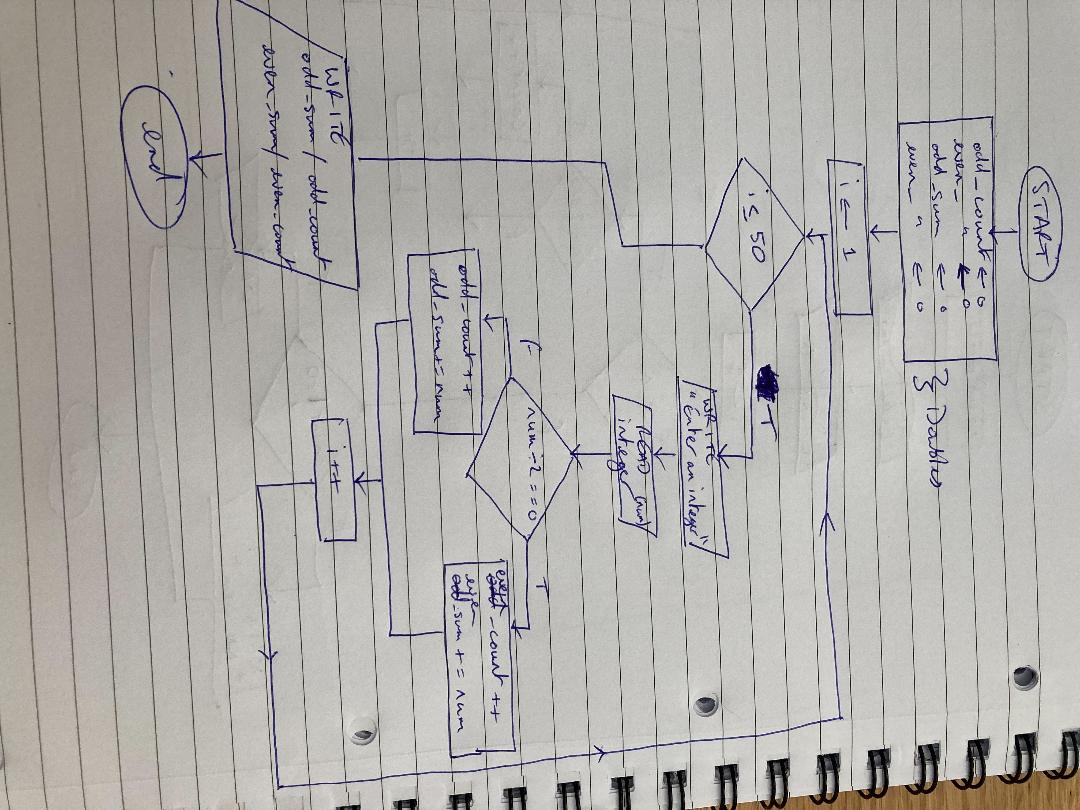 START
odd_count ← 0
even_ " ← 0
odd_sum ← 0
even_ " ← 0
} Doubles
i ← 1
i ≤ 50
T
WRITE
"Enter an integer"
READ (num)
integer
num÷2 == 0
F
T
odd_count ++
odd_sum += num
even_count ++
even_sum += num
i++
WRITE
odd_sum / odd_count
even_sum / even_count
end